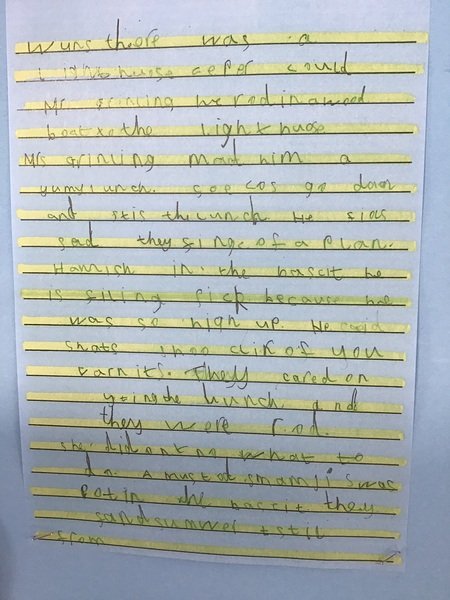 Wuns there was a
lighthuose ceper could
Mr grinling he rod in a wood
boat to the lighthuose
Mrs Grinling mad him a
yumy lunch. see gos go down
and stis the lunch. He sios
sad they finge of a Plan.
Hamish in the bascit he
is filing sick because he
was so high up. He
snats shoo clik of you
varmits. They cared on
the lunch and
they were rod.
she did ont no what to
do. A mustd smamjis was
pot in the bascit they
sand sumwer
from